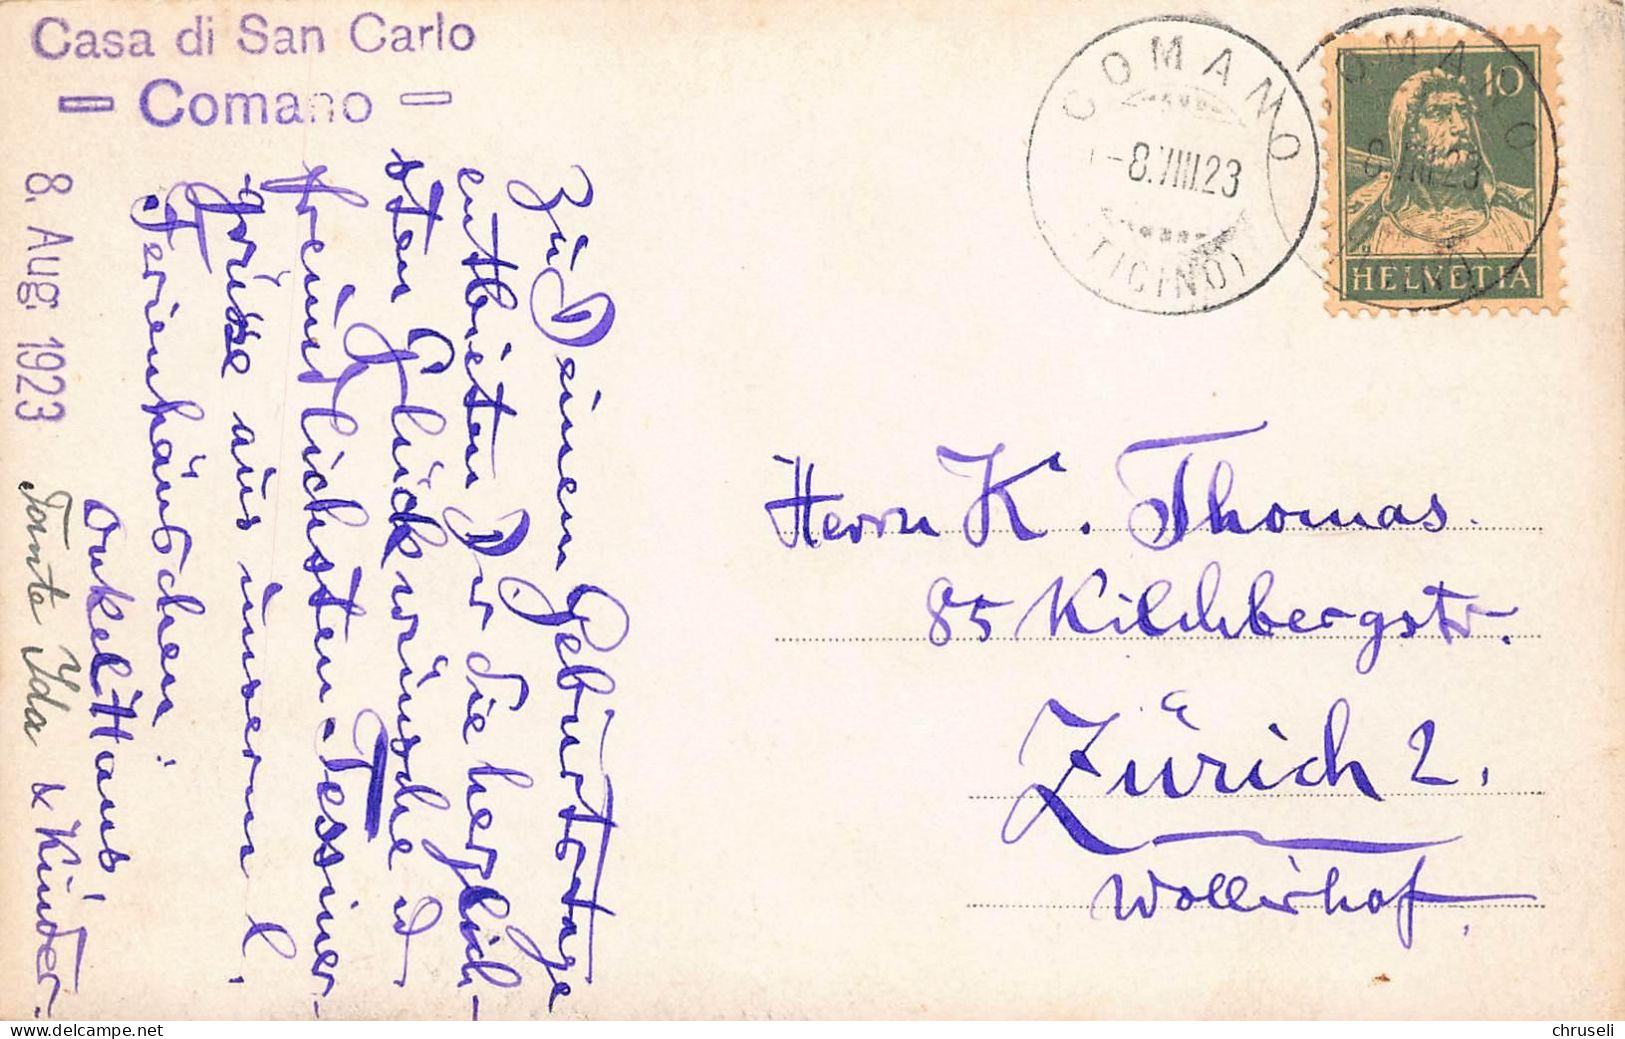 Casa di San Carlo
— Comano —
8. Aug. 1923
Zu Deinem Geburtstage
entbieten Dir die herzlich-
sten Glückwünsche u
freundlichsten Tessiner-
grüsse aus unserm l.
Ferienhäuschen:
Onkel Hans,
Tante Ida & Kinder.
COMANO
-8.VIII.23
(TICINO)
COMANO
-8.VIII.23
(TICINO)
10
HELVETIA
Herrn K. Thomas.
85 Kilchbergstr.
Zürich 2.
Wollishof.
© chruseli
www.delcampe.net/website